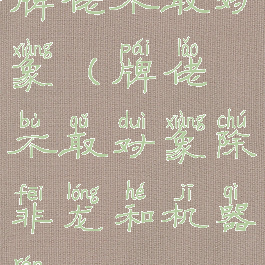 牌佬不取对
xiàng pái lǎo
象（牌佬
bù qǔ duì xiàng chú
不取对象除
fēi lóng hé jī qì
非龙和机器